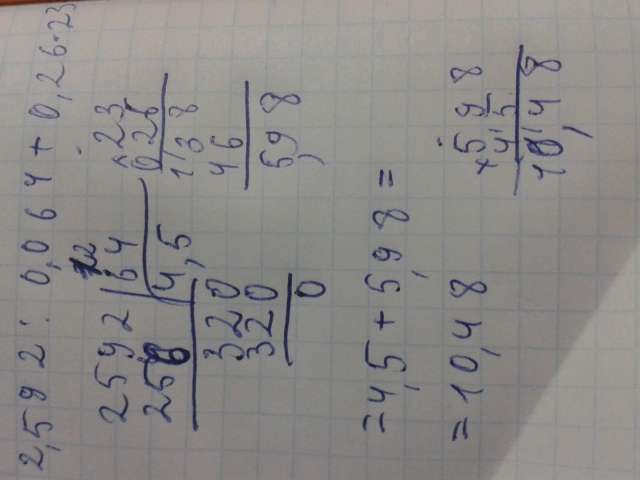 2,592 : 0,064 + 0,26·23
2592 | 64
256 4,5
320
320
0
23
026
138
46
5,98
= 4,5 + 5,98 =
= 10,48
× 598
45
10,48